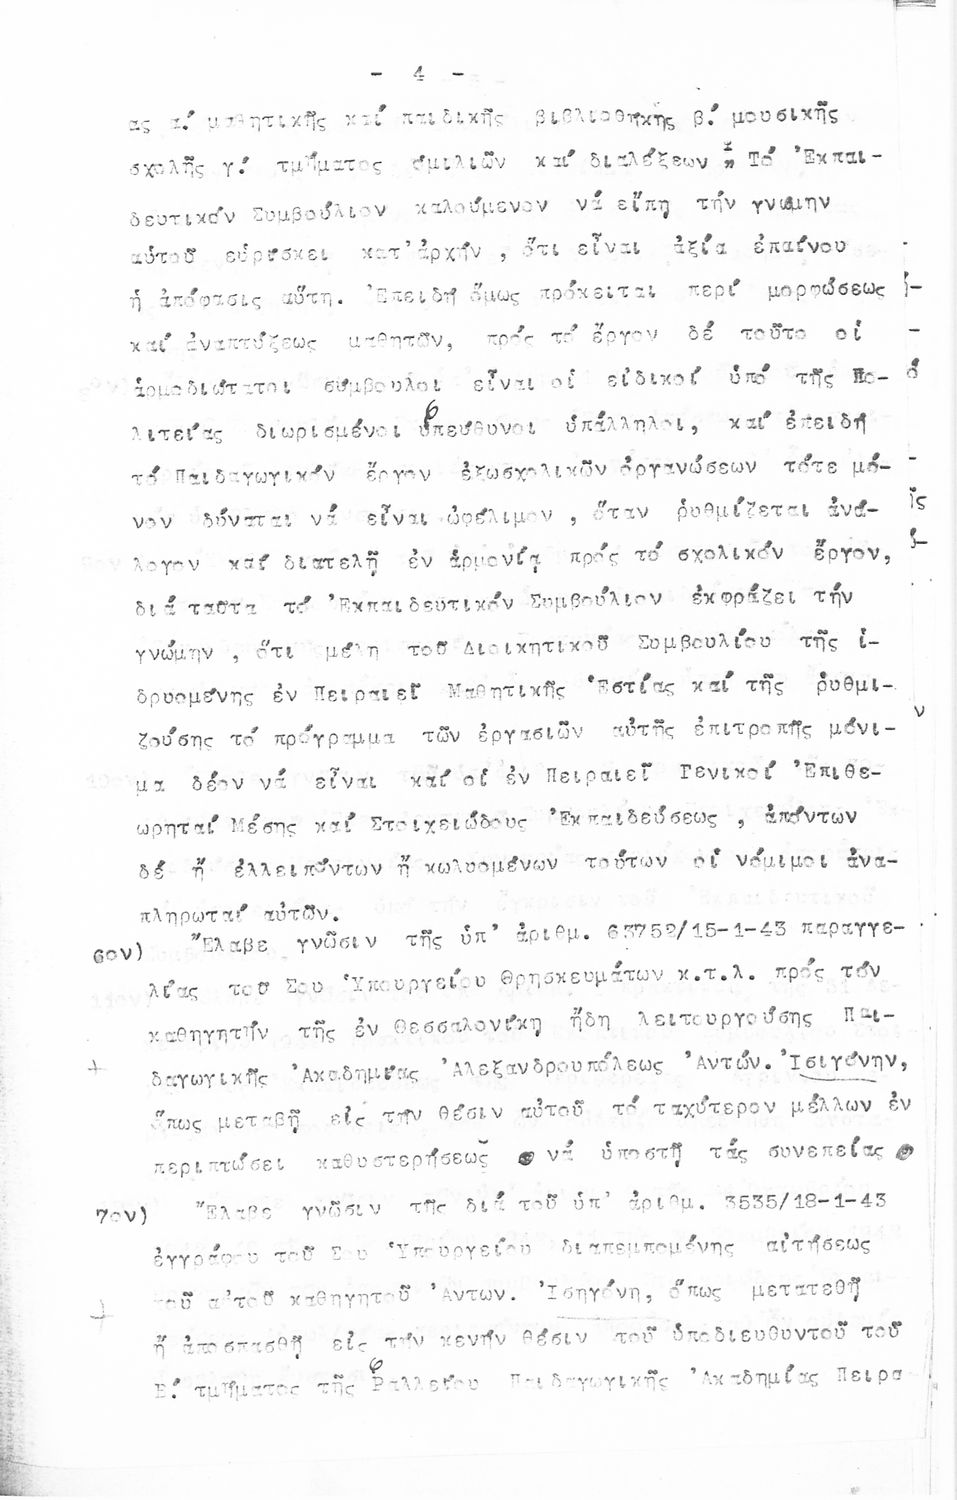 - 4 -
ας α.' μαθητικῆς καί παιδικῆς βιβλιοθήκης β.' μουσικῆς
σχολῆς γ.' τμήματος ὁμιλιῶν καί διαλέξεων " Τό Ἐκπαι-
δευτικόν Συμβούλιον καλούμενον νά εἴπη τήν γνώμην
αὑτοῦ εὑρίσκει κατ' ἀρχήν , ὅτι εἶναι ἀξία ἐπαίνου
ἡ ἀπόφασις αὕτη. Ἐπειδή ὅμως πρόκειται περί μορφώσεως
καί ἀναπτύξεως μαθητῶν, πρός τό ἔργον δέ τοῦτο οἱ
ἁρμοδιώτατοι σύμβουλοι εἶναι οἱ εἰδικοί ὑπό τῆς Πο-
λιτείας διωρισμένοι ὑπεύθυνοι ὑπάλληλοι, καί ἐπειδή
τό Παιδαγωγικόν ἔργον ἐξωσχολικῶν ὀργανώσεων τότε μό-
νον δύναται νά εἶναι ὠφέλιμον , ὅταν ῥυθμίζεται ἀνά-
λογον καί διατελῆ ἐν ἁρμονίᾳ πρός τό σχολικόν ἔργον,
διά ταῦτα τό Ἐκπαιδευτικόν Συμβούλιον ἐκφράζει τήν
γνώμην , ὅτι μέλη τοῦ Διοικητικοῦ Συμβουλίου τῆς ἱ-
δρυομένης ἐν Πειραιεῖ Μαθητικῆς Ἑστίας καί τῆς ῥυθμι-
ζούσης τό πρόγραμμα τῶν ἐργασιῶν αὐτῆς ἐπιτροπῆς μόνι-
μα δέον νά εἶναι καί οἱ ἐν Πειραιεῖ Γενικοί Ἐπιθε-
ωρηταί Μέσης καί Στοιχειώδους Ἐκπαιδεύσεως , ἀπόντων
δέ ἤ ἐλλειπόντων ἤ κωλυομένων τούτων οἱ νόμιμοι ἀνα-
πληρωταί αὐτῶν.
6ον) Ἔλαβε γνῶσιν τῆς ὑπ' ἀριθμ. 63752/15-1-43 παραγγε-
λίας τοῦ Σου Ὑπουργείου Θρησκευμάτων κ.τ.λ. πρός τόν
καθηγητήν τῆς ἐν Θεσσαλονίκη ἤδη λειτουργούσης Παι-
δαγωγικῆς Ἀκαδημίας Ἀλεξανδρουπόλεως Ἀντών. Ἰσιγόνην,
ὅπως μεταβῆ εἰς τήν θέσιν αὑτοῦ τό ταχύτερον μέλλων ἐν
περιπτώσει καθυστερήσεως νά ὑποστῆ τάς συνεπείας
7ον) Ἔλαβε γνῶσιν τῆς διά τοῦ ὑπ' ἀριθμ. 3535/18-1-43
ἐγγράφου τοῦ Σου Ὑπουργείου διαπεμπομένης αἰτήσεως
τοῦ αὐτοῦ καθηγητοῦ Ἀντων. Ἰσηγόνη, ὅπως μετατεθῆ
ἤ ἀποσπασθῆ εἰς τήν κενήν θέσιν τοῦ ὑποδιευθυντοῦ τοῦ
Β.' τμήματος τῆς Ῥαλλείου Παιδαγωγικῆς Ἀκαδημίας Πειρα